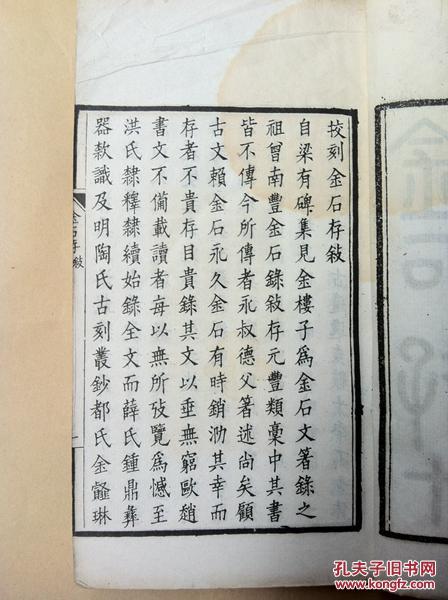 挍刻金石存敍
自梁有碑集見金樓子爲金石文箸錄之
祖曾南豐金石錄敍存元豐類稾中其書
皆不傳今所傳者永叔德父箸述尚矣顧
古文賴金石永久金石有時銷泐其幸而
存者不貴存目貴錄其文以垂無窮歐趙
書文不僃載讀者每以無所攷覽爲憾至
洪氏隸釋隸續始錄全文而薛氏鍾鼎彝
器款識及明陶氏古刻叢鈔都氏金薤琳
金石存敍
一
孔夫子旧书网
KONGFZ.COM